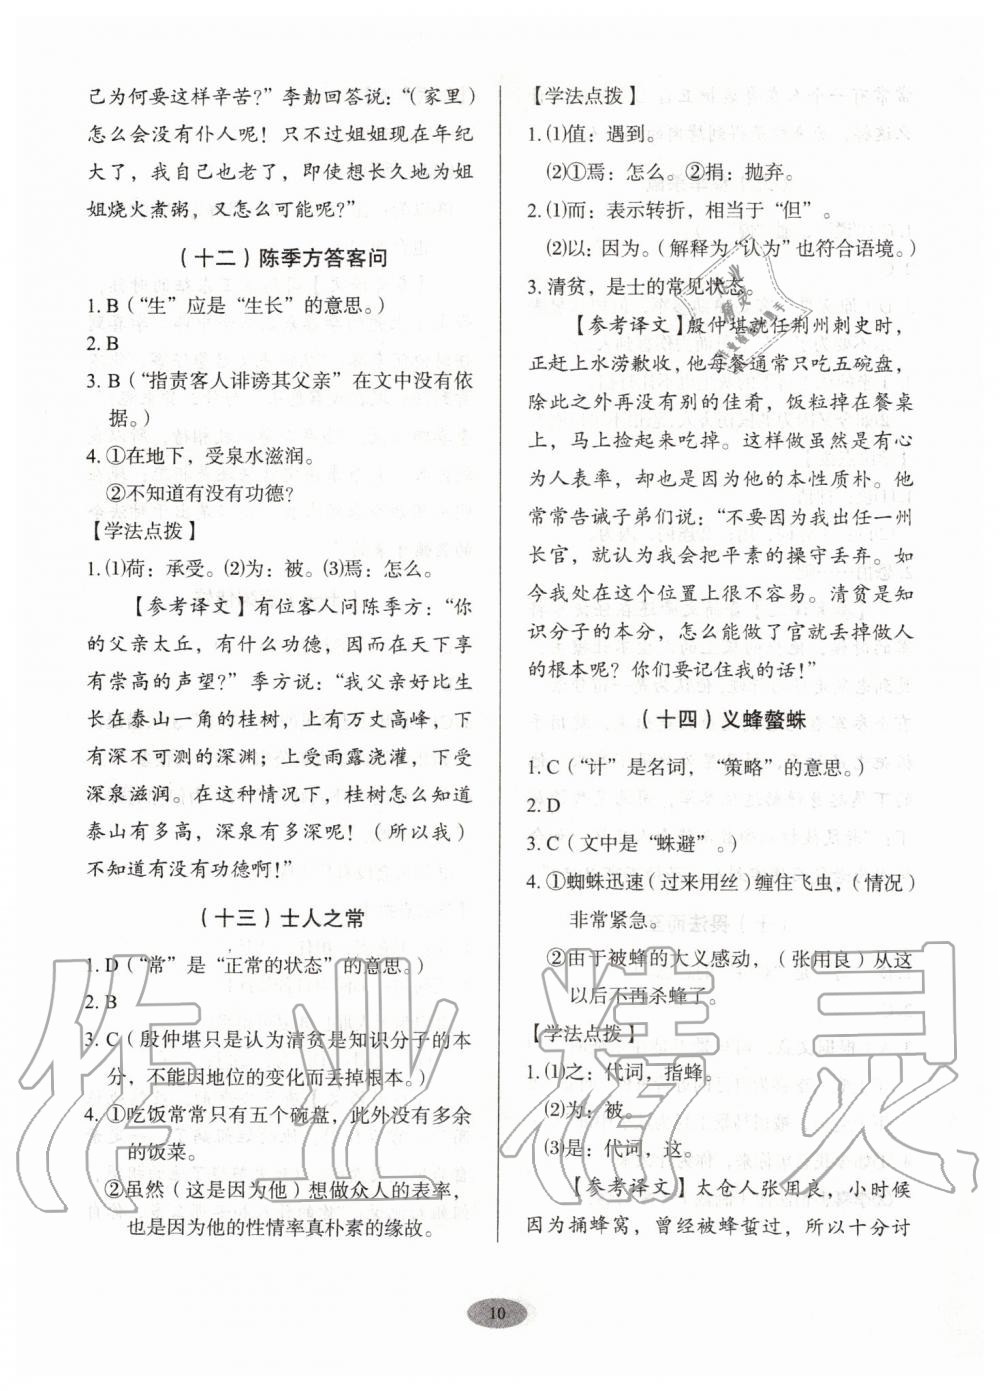 己为何要这样辛苦?”李勣回答说:“(家里)
怎么会没有仆人呢！只不过姐姐现在年纪
大了，我自己也老了，即使想长久地为姐
姐烧火煮粥，又怎么可能呢?”
(十二)陈季方答客问
1. B(“生”应是“生长”的意思。)
2. B
3. B(“指责客人诽谤其父亲”在文中没有依
据。)
4. ①在地下，受泉水滋润。
②不知道有没有功德?
【学法点拨】
1. (1)荷：承受。(2)为：被。(3)焉：怎么。
【参考译文】有位客人问陈季方：“你
的父亲太丘，有什么功德，因而在天下享
有崇高的声望?”季方说：“我父亲好比生
长在泰山一角的桂树，上有万丈高峰，下
有深不可测的深渊；上受雨露浇灌，下受
深泉滋润。在这种情况下，桂树怎么知道
泰山有多高，深泉有多深呢！(所以我)
不知道有没有功德啊!”
(十三)士人之常
1. D(“常”是“正常的状态”的意思。)
2. B
3. C(殷仲堪只是认为清贫是知识分子的本
分，不能因地位的变化而丢掉根本。)
4. ①吃饭常常只有五个碗盘，此外没有多余
的饭菜。
②虽然(这是因为他)想做众人的表率，
也是因为他的性情率真朴素的缘故。
【学法点拨】
1. (1)值：遇到。
(2)①焉：怎么。②捐：抛弃。
2. (1)而：表示转折，相当于“但”。
(2)以：因为。(解释为“认为”也符合语境。)
3. 清贫，是士的常见状态。
【参考译文】殷仲堪就任荆州刺史时，
正赶上水涝歉收，他每餐通常只吃五碗盘，
除此之外再没有别的佳肴，饭粒掉在餐桌
上，马上捡起来吃掉。这样做虽然是有心
为人表率，却也是因为他的本性质朴。他
常常告诫子弟们说：“不要因为我出任一州
长官，就认为我会把平素的操守丢弃。如
今我处在这个位置上很不容易。清贫是知
识分子的本分，怎么能做了官就丢掉做人
的根本呢？你们要记住我的话!”
(十四)义蜂螫蛛
1. C(“计”是名词，“策略”的意思。)
2. D
3. C(文中是“蛛避”。)
4. ①蜘蛛迅速(过来用丝)缠住飞虫，(情况)
非常紧急。
②由于被蜂的大义感动，(张用良)从这
以后不再杀蜂了。
【学法点拨】
1. (1)之：代词，指蜂。
(2)为：被。
(3)是：代词，这。
【参考译文】太仓人张用良，小时候
因为捅蜂窝，曾经被蜂蜇过，所以十分讨
10
作业精灵